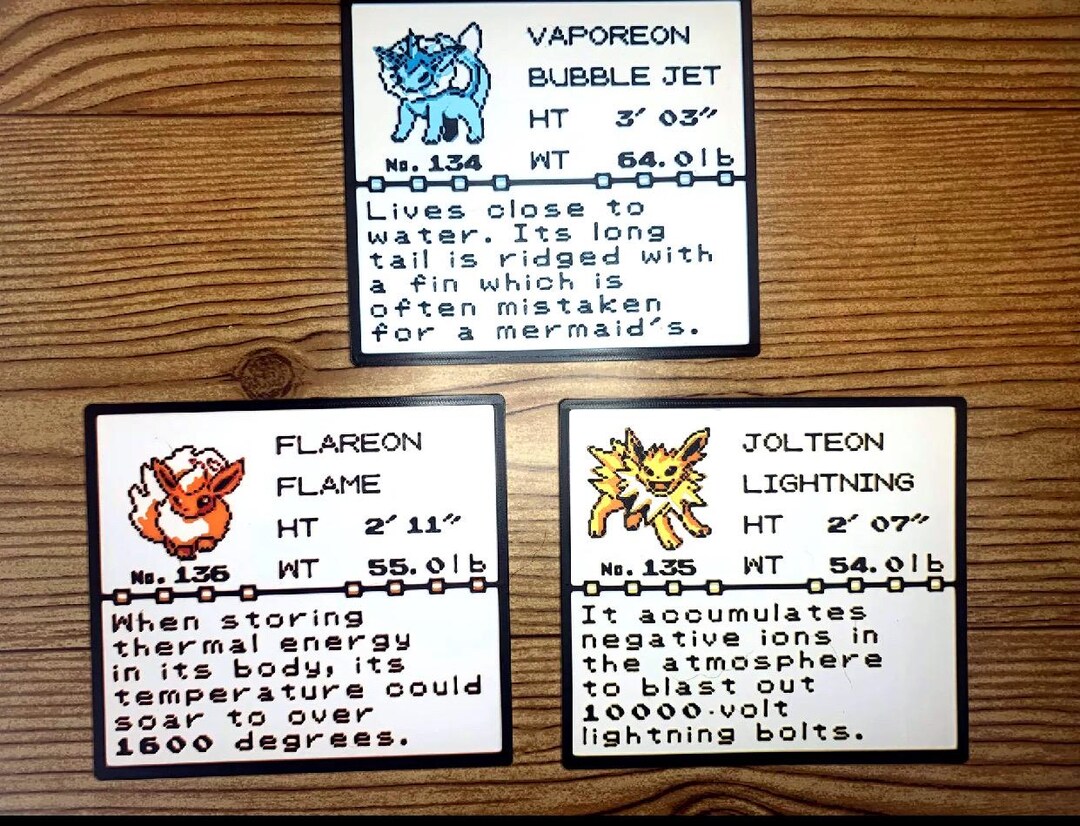 VAPOREON
BUBBLE JET
HT 3′ 03″
No. 134 WT 64.0lb
Lives close to
water. Its long
tail is ridged with
a fin which is
often mistaken
for a mermaid's.
FLAREON
FLAME
HT 2′ 11″
No. 136 WT 55.0lb
When storing
thermal energy
in its body, its
temperature could
soar to over
1600 degrees.
JOLTEON
LIGHTNING
HT 2′ 07″
No. 135 WT 54.0lb
It accumulates
negative ions in
the atmosphere
to blast out
10000-volt
lightning bolts.